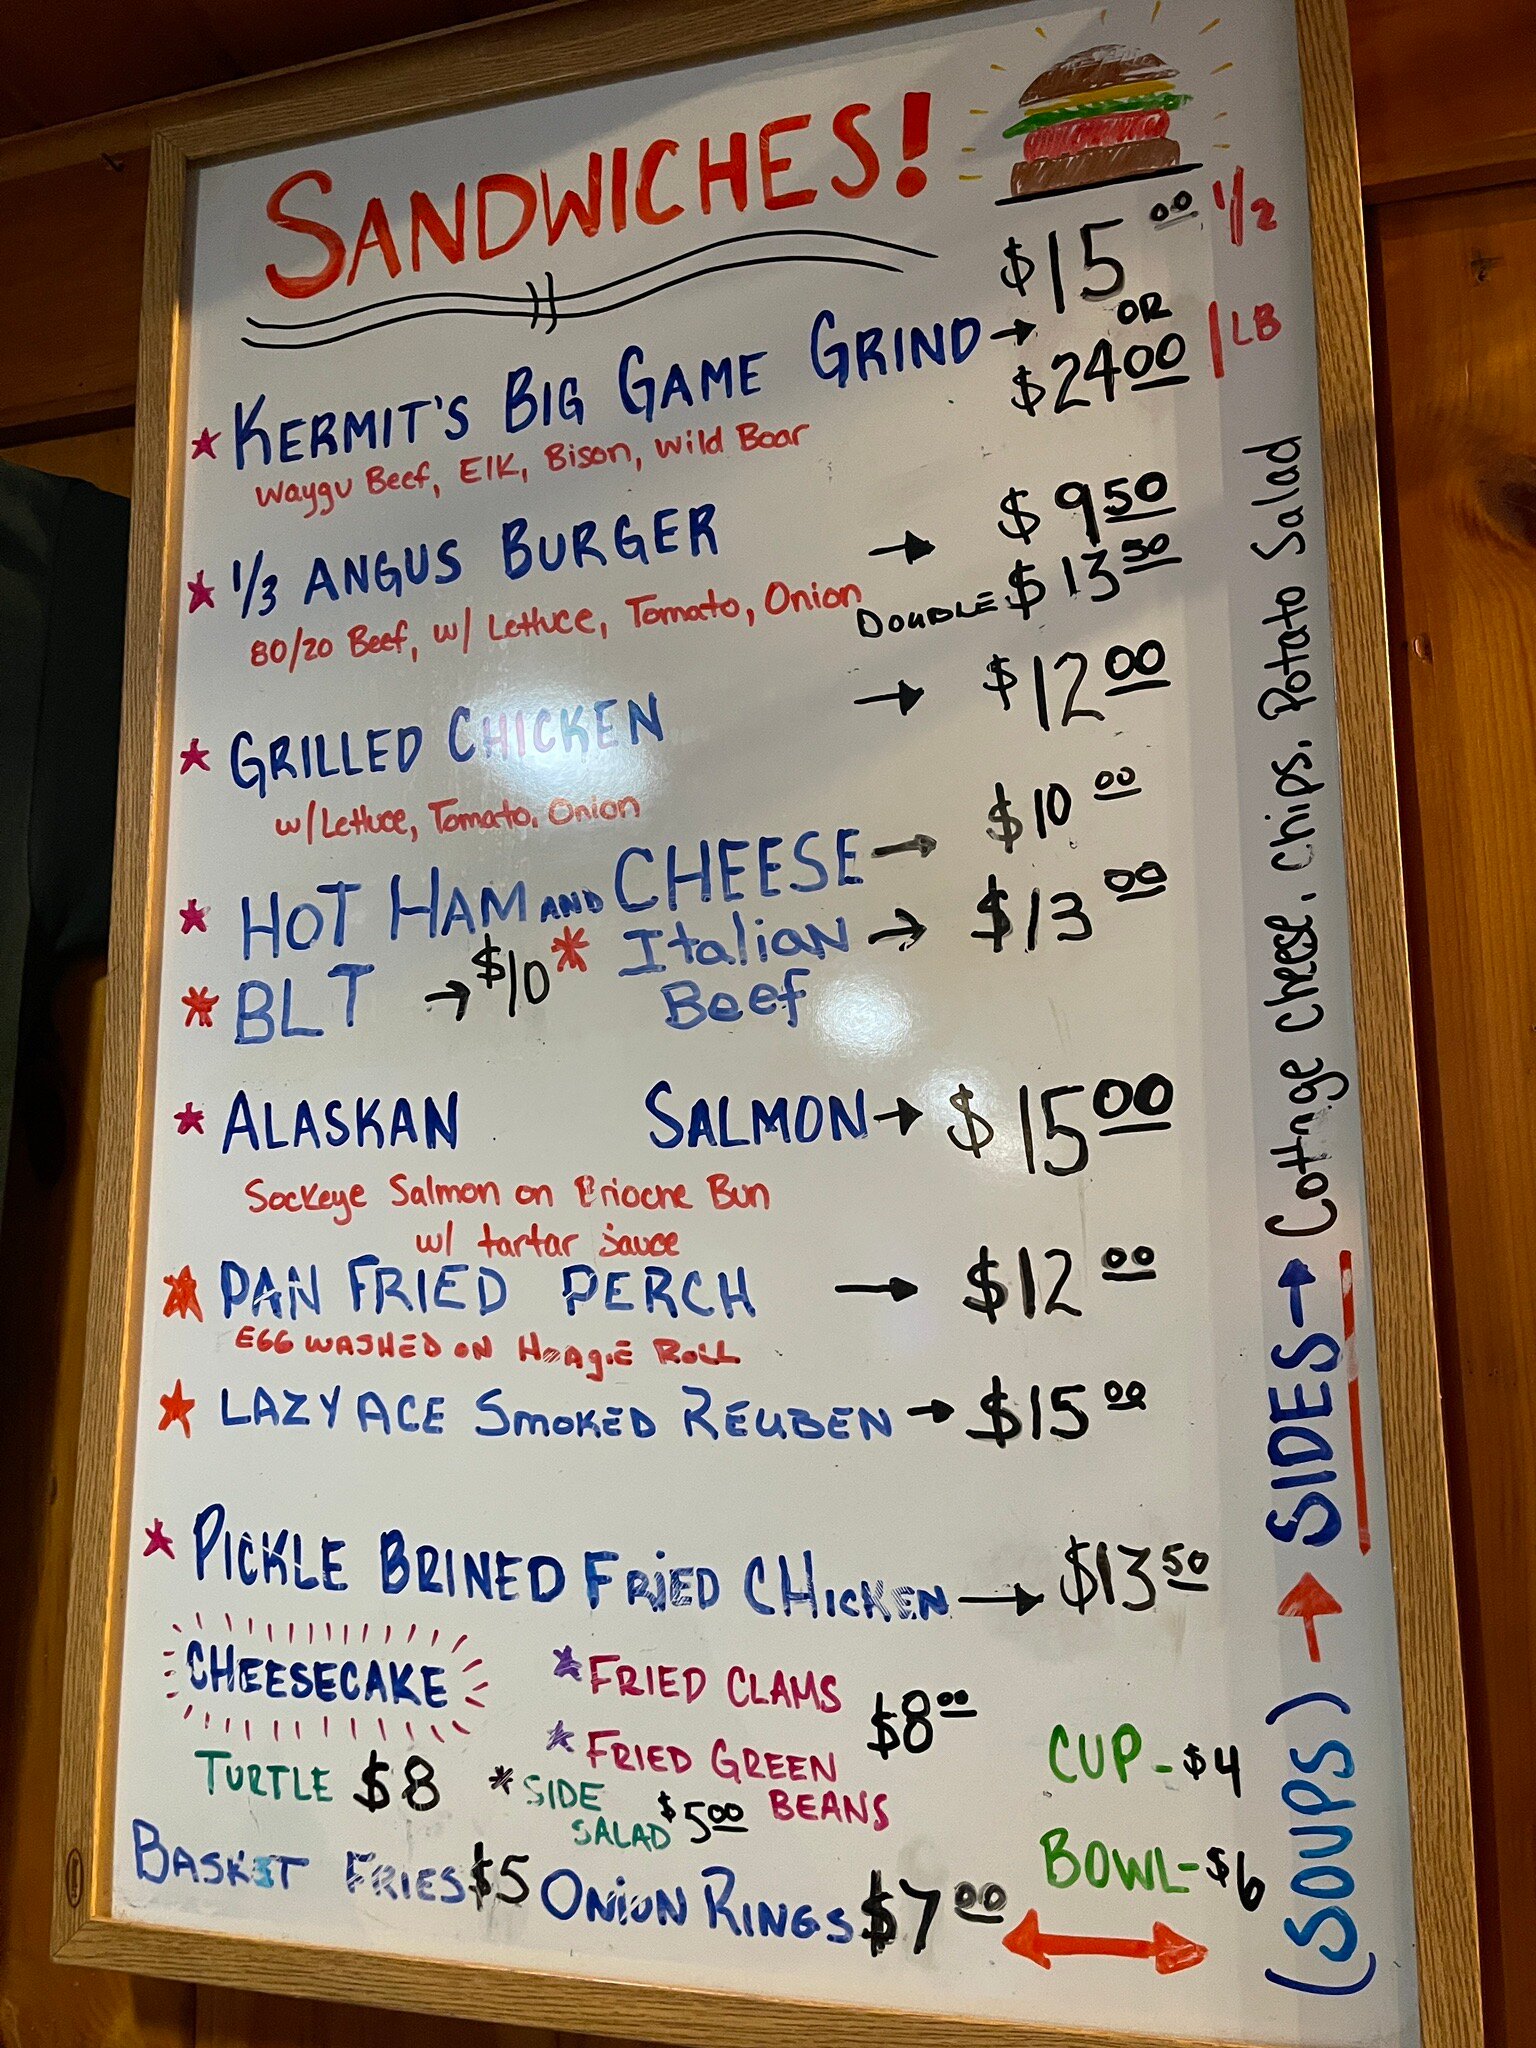 SANDWICHES!
$15.00 1/2
OR
★ KERMIT'S BIG GAME GRIND → $24.00 1 LB
Waygu Beef, Elk, Bison, Wild Boar
★ 1/3 ANGUS BURGER → $9.50
80/20 Beef, w/ Lettuce, Tomato, Onion DOUBLE $13.50
★ GRILLED CHICKEN → $12.00
w/ Lettuce, Tomato, Onion
★ HOT HAM AND CHEESE → $10.00
* BLT → $10 * Italian Beef → $13.00
★ ALASKAN SALMON → $15.00
Sockeye Salmon on Brioche Bun
w/ tartar sauce
★ PAN FRIED PERCH → $12.00
EGG WASHED ON HOAGIE ROLL
★ LAZY ACE SMOKED REUBEN → $15.00
★ PICKLE BRINED FRIED CHICKEN → $13.50
CHEESECAKE
TURTLE $8
* FRIED CLAMS
* FRIED GREEN BEANS $8.00
* SIDE SALAD $5.00
BASKET FRIES $5 ONION RINGS $7.00
CUP - $4
BOWL - $6
(SOUPS) → SIDES → Cottage cheese, chips, Potato Salad